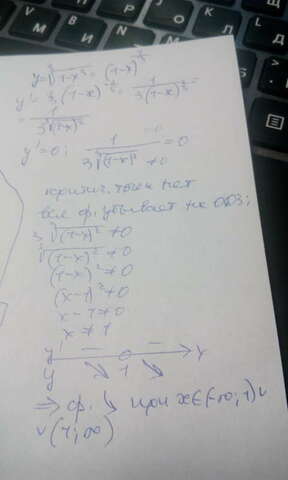 y=∛(1-x)= (1-x)^⅓
y'= ⅓·(1-x)^(-⅔) = 1/(3(1-x)^⅔) =
= 1/(3∛(1-x)²)
y'=0; 1/(3∛(1-x)²) = 0
≠0
критич. точек нет
вся ф. убывает на ООЗ;
3∛(1-x)² ≠0
∛(1-x)² ≠0
(1-x)²≠0
(x-1)²≠0
x-1≠0
x≠1
y' - 0 - x
y ↘ 1 ↘
⇒ ф. ↘ при x∈(-∞;1)∪
∪(1;∞)